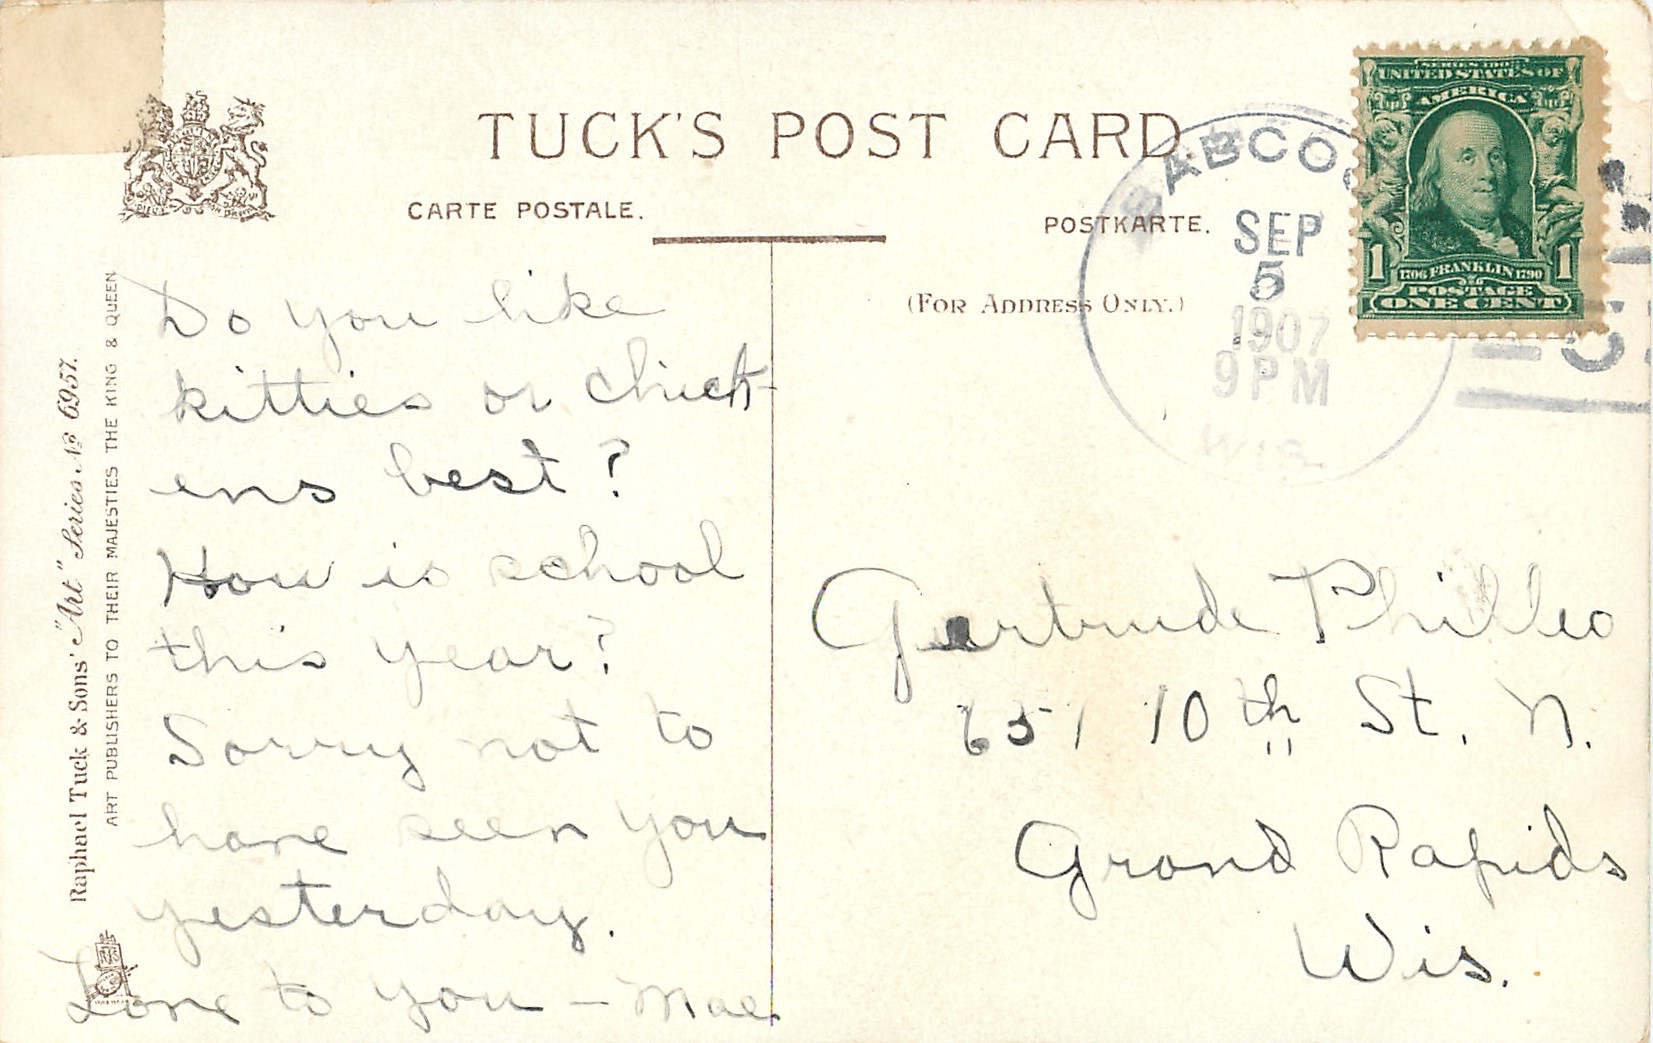 TUCK'S POST CARD
CARTE POSTALE.
POSTKARTE.
(FOR ADDRESS ONLY.)
BABCO
SEP
5
1907
9 PM
WIS.
UNITED STATES OF
AMERICA
1 1706 FRANKLIN 1790 1
POSTAGE
ONE CENT
Raphael Tuck & Sons' "Art" Series No 6957.
ART PUBLISHERS TO THEIR MAJESTIES THE KING & QUEEN
Do you like
kitties or chick-
ens best?
How is school
this year?
Sorry not to
have seen you
yesterday.
Love to you – Mae
Gertrude Philleo
651 10th St. N.
Grand Rapids
Wis.